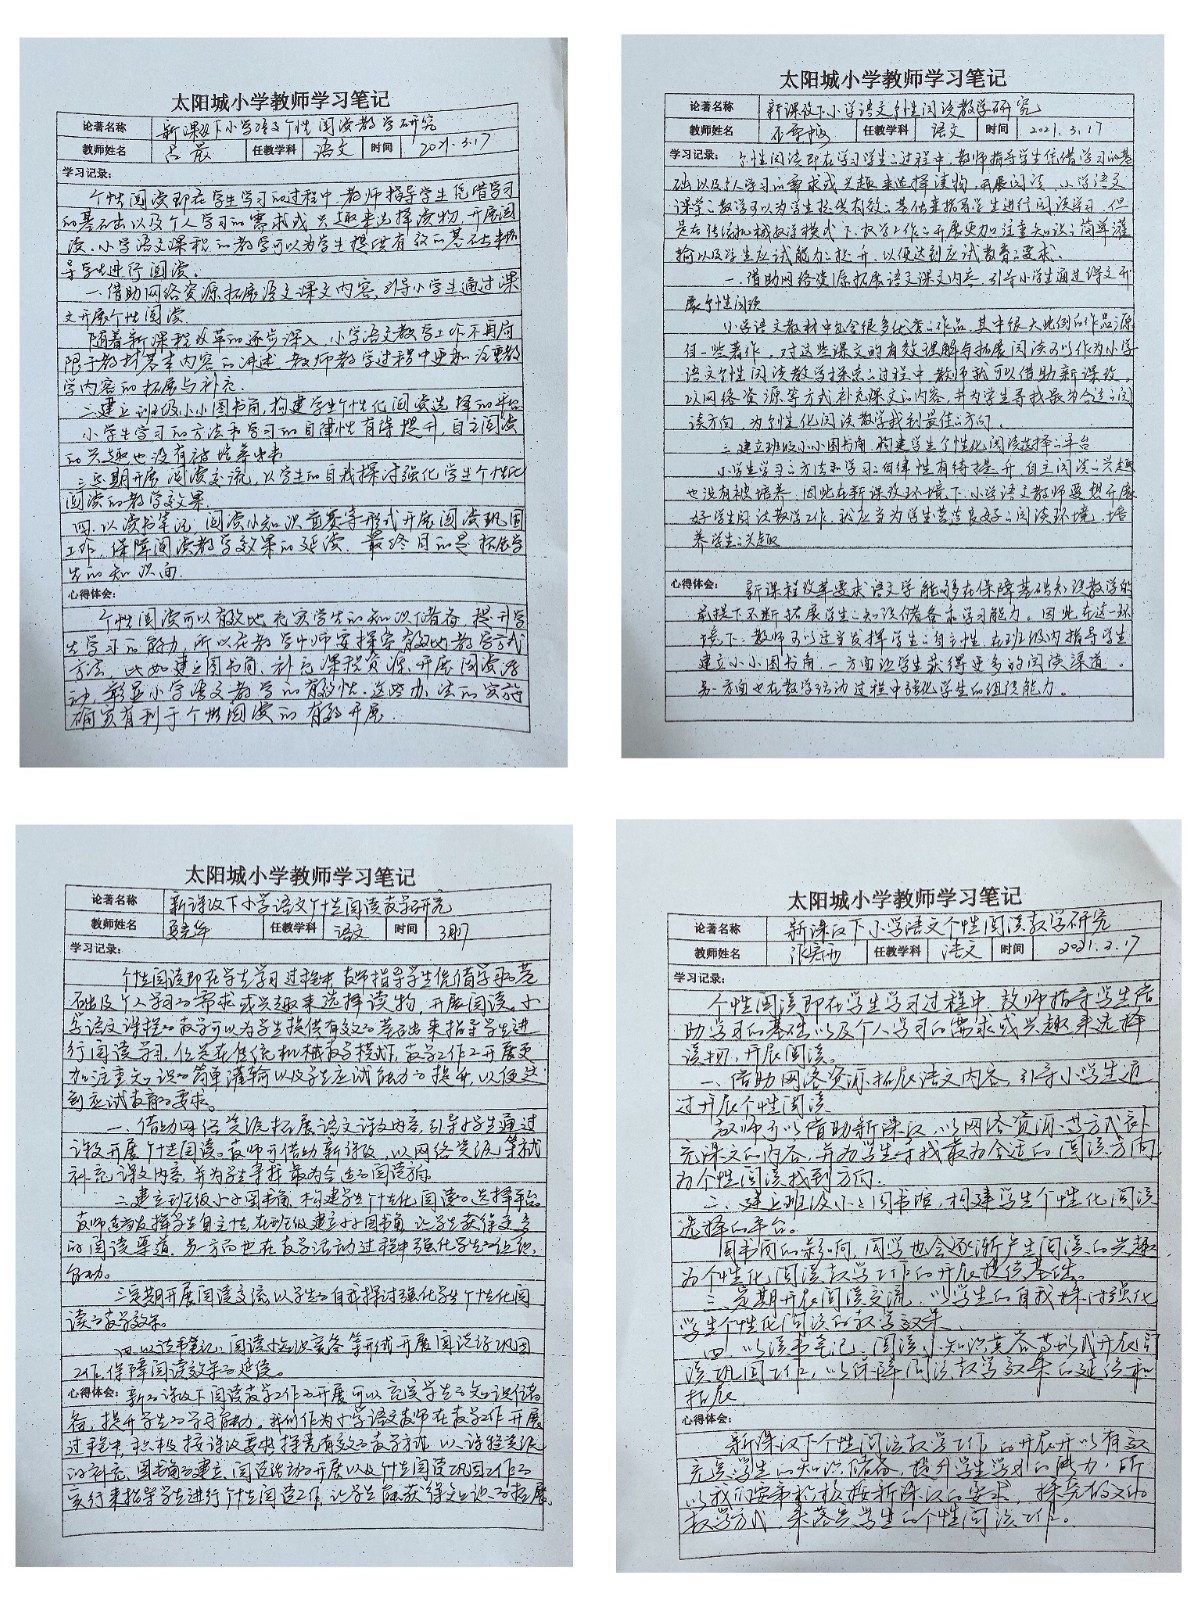 太阳城小学教师学习笔记
论著名称 新课改下小学语文个性阅读教学研究
教师姓名 任教学科 语文 时间 2021.3.17
学习记录:
个性阅读即在学生学习的过程中,教师指导学生凭借学习
的基础以及个人学习的需求或兴趣来选择读物,开展阅
读。小学语文课程的教学可以为学生提供有效的基础来指
导学生进行阅读。
一、借助网络资源拓展语文课文内容,引导小学生通过课
文开展个性阅读
随着新课程改革的逐步深入,小学语文教学工作不再局
限于教材基本内容的讲述,教师教学过程中更加注重教
学内容的拓展与补充.
二.建立班级小小图书角,构建学生个性化阅读选择的平台
小学生学习的方法和学习的自律性有待提升,自主阅读
的兴趣也没有被培养出来
三.定期开展阅读交流,以学生的自我探讨强化学生个性化
阅读的教学效果
四.以读书笔记,阅读小知识竞赛等形式开展阅读巩固
工作,保障阅读教学效果的延续.最终目的是拓展学
生的知识面.
心得体会:
个性阅读可以有效地充实学生的知识储备,提升学
生学习的能力,所以在教学中师要探究有效地教学方式
方法,比如建立图书角,补充课程资源,开展阅读活
动,彰显小学语文教学的有效性.这些办法的实施
确实有利于个性阅读的有效开展.
太阳城小学教师学习笔记
论著名称 新课改下小学语文个性阅读教学研究
教师姓名 任教学科 语文 时间 2021.3.17
学习记录: 个性阅读即在学习学生之过程中,教师指导学生凭借学习的基
础以及个人学习的需求或兴趣来选择读物,开展阅读。小学语文
课学之教学可以为学生提供有效之基础来指导学生进行阅读学习,但
是在传统机械教学模式下,教学工作之开展更加注重知识之简单灌
输以及学生应试能力之提升,以便达到应试教育之要求.
一.借助网络资源拓展语文课文内容,引导小学生通过课文开
展个性阅读
小学语文教材中包含很多优秀之作品,其中很大比例的作品源
自一些著作,对这些课文的有效理解与拓展阅读可以作为小学
语文个性阅读教学探索之过程中,教师就可以借助新课改,
以网络资源等方式补充课文的内容,并为学生寻找最为合适之阅
读方向,为个性化阅读教学找到最佳之方向.
二.建立班级小小图书角,构建学生个性化阅读选择之平台
小学生学习之方法和学习之自律性有待提升,自主阅读之兴趣
也没有被培养,因此在新课改环境下,小学语文教师要想开展
好学生阅读教学工作,就应当为学生营造良好之阅读环境,培
养学生之兴趣
心得体会: 新课程改革要求语文学能够在保障基础知识教学的
前提下不断拓展学生之知识储备和学习能力。因此在这一环
境下,教师可以适当发挥学生之自主性,在班级内指导学生
建立小小图书角,一方面让学生获得更多的阅读渠道,
另一方面也在教学活动过程中强化学生的组织能力。
太阳城小学教师学习笔记
论著名称 新课改下小学语文个性阅读教学研究
教师姓名 任教学科 语文 时间
学习记录:
个性阅读即在学生学习过程中,教师指导学生凭借学习的基
础以及个人学习的需求或兴趣来选择读物,开展阅读。小
学语文课程的教学可以为学生提供有效的基础来指导学生进
行阅读学习,但是在传统机械教学模式,教学工作的开展更
加注重知识的简单灌输以及学生应试能力的提升,以便达
到应试教育的要求。
一、借助网络资源拓展语文课文内容,引导小学生通过
课文开展个性阅读。教师可借助新课改,以网络资源等方式
补充课文内容,并为学生寻找最为合适的阅读方向。
二.建立班级小小图书角,构建学生个性化阅读的选择平台
教师适当发挥学生自主性,在班级建立小小图书角,让学生获得更多
的阅读渠道,另一方面也在教学活动过程中强化学生的组织
能力。
三.定期开展阅读交流,以学生的自我探讨强化学生个性化阅
读的教学效果。
四.以读书笔记、阅读小知识竞答等形式开展阅读活巩固
工作,保障阅读效果的延续。
心得体会: 新的课改下阅读教学工作的开展可以充实学生的知识储
备,提升学生的学习能力,我们作为小学语文教师在教学工作开展
过程中,积极按课改要求探究有效的教学方法,以课程资源
的补充、图书角的建立、阅读活动的开展以及个性阅读巩固工作的
实行来指导学生进行个性阅读工作,让学生能获得文知识的拓展。
太阳城小学教师学习笔记
论著名称 新课改下小学语文个性阅读教学研究
教师姓名 任教学科 语文 时间 2021.3.17
学习记录:
个性阅读即在学生学习过程中,教师指导学生借
助学习的基础以及个人学习的需求或兴趣来选择
读物,开展阅读。
一、借助网络资源拓展语文内容,引导小学生通
过开展个性阅读
教师可以借助新课改,以网络资源等方式补
充课文的内容,并为学生寻找最为合适的阅读方向
为个性阅读找到方向.
二、建立班级小小图书馆,构建学生个性化阅读
选择的平台。
图书间的影响,同学也会逐渐产生阅读的兴趣
为个性化阅读教学工作的开展提供基础。
三.定期开展阅读交流,以学生的自我探讨强化
学生个性化阅读的教学效果.
四.以读书笔记、阅读小知识竞答等形式开展阅
读巩固工作,以保障阅读教学效果的延续和
拓展.
心得体会:
新课改下个性阅读教学工作的开展可以有效
充实学生的知识储备,提升学生学习的能力,所
以我们要积极按新课改的要求,探究有效的
教学方式,来落实学生的个性阅读工作。